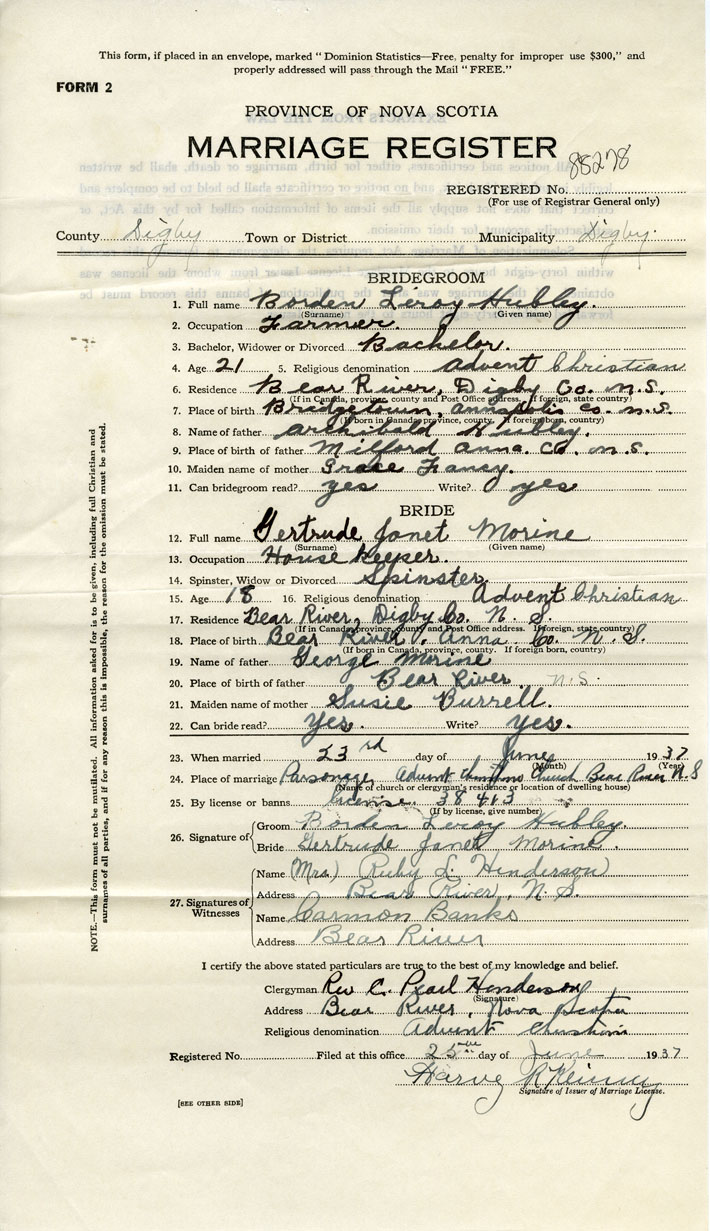 This form, if placed in an envelope, marked "Dominion Statistics—Free, penalty for improper use $300," and
properly addressed will pass through the Mail "FREE."
FORM 2
PROVINCE OF NOVA SCOTIA
MARRIAGE REGISTER
88278
REGISTERED No.
(For use of Registrar General only)
County Digby Town or District Municipality Digby.
BRIDEGROOM
1. Full name Borden Leroy Hubley
(Surname) (Given name)
2. Occupation Farmer.
3. Bachelor, Widower or Divorced Bachelor.
4. Age 21 5. Religious denomination Advent Christian
6. Residence Bear River, Digby Co. N.S.
(If in Canada, province, county and Post Office address. If foreign, state country)
7. Place of birth Bridgetown, Annapolis Co. N.S.
(If born in Canada, province, county. If foreign born, country)
8. Name of father Archibald Hubley.
9. Place of birth of father Milford Anna. Co. N.S.
10. Maiden name of mother Grace Fancy.
11. Can bridegroom read? yes Write? yes
BRIDE
12. Full name Gertrude Janet Morine
(Surname) (Given name)
13. Occupation House Keeper.
14. Spinster, Widow or Divorced Spinster
15. Age 18 16. Religious denomination Advent Christian
17. Residence Bear River, Digby Co. N. S.
(If in Canada, province, county and Post Office address. If foreign, state country)
18. Place of birth Bear River, Anna. Co. N. S.
(If born in Canada, province, county. If foreign born, country)
19. Name of father George Morine
20. Place of birth of father Bear River N.S.
21. Maiden name of mother Susie Burrell.
22. Can bride read? Yes. Write? yes.
23. When married 23rd day of June 1937
(Month) (Year)
24. Place of marriage Parsonage Advent Christian Church Bear River N.S
(Name of church or clergyman's residence or location of dwelling house)
25. By license or banns License 38413
(If by license, give number)
26. Signature of Groom Borden Leroy Hubley.
Bride Gertrude Janet Morine.
27. Signatures of Witnesses
Name (Mrs.) Ruby L. Henderson
Address Bear River, N. S.
Name Carmon Banks
Address Bear River
I certify the above stated particulars are true to the best of my knowledge and belief.
Clergyman Rev C. Pearl Henderson
(Signature)
Address Bear River, Nova Scotia
Religious denomination Advent Christian
Registered No. Filed at this office 25th day of June 1937
Harvey R
Signature of Issuer of Marriage License.
[SEE OTHER SIDE]
NOTE.—This form must not be mutilated. All information asked for is to be given, including full Christian and
surnames of all parties, and if for any reason this is impossible, the reason for the omission must be stated.